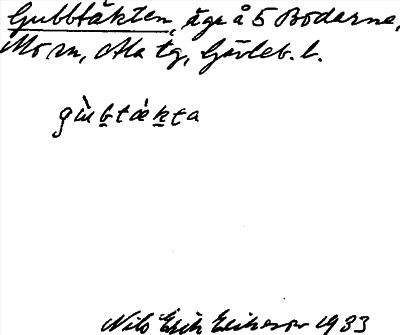 Gubbtäkten, äga å 5 Bodarne,
Mo sn, Ala tg, Gävleb. l.
gùb̲tæ̀k̲ta
Nils Erik Eriksson 1933